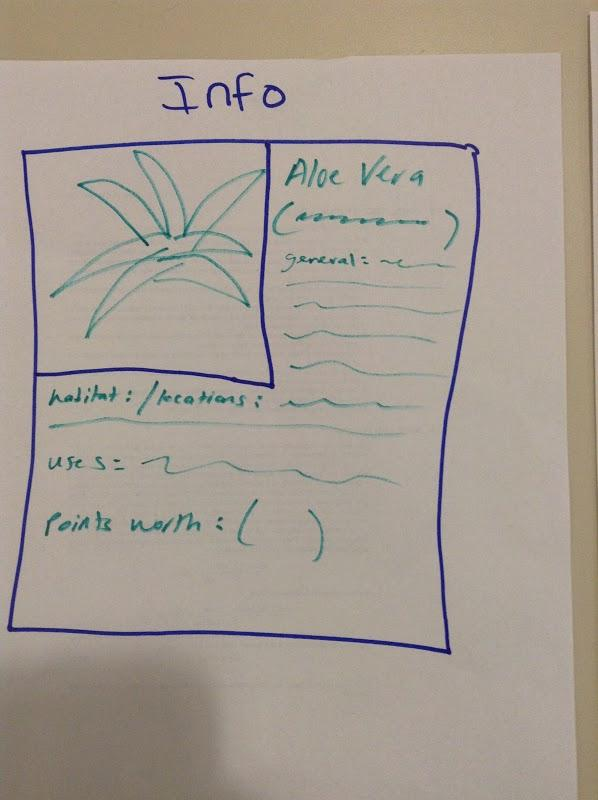 Info
Aloe Vera
( )
general:
habitat:/locations:
uses=
points worth: ( )